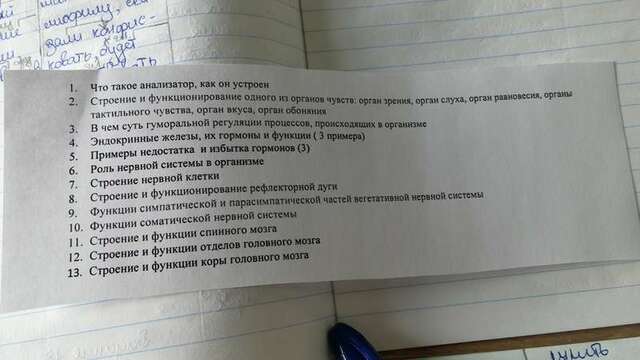 мозги
1. Что такое анализатор, как он устроен
2. Строение и функционирование одного из органов чувств: орган зрения, орган слуха, орган равновесия, органы
тактильного чувства, орган вкуса, орган обоняния
3. В чем суть гуморальной регуляции процессов, происходящих в организме
4. Эндокринные железы, их гормоны и функции ( 3 примера)
5. Примеры недостатка и избытка гормонов (3)
6. Роль нервной системы в организме
7. Строение нервной клетки
8. Строение и функционирование рефлекторной дуги
9. Функции симпатической и парасимпатической частей вегетативной нервной системы
10. Функции соматической нервной системы
11. Строение и функции спинного мозга
12. Строение и функции отделов головного мозга
13. Строение и функции коры головного мозга